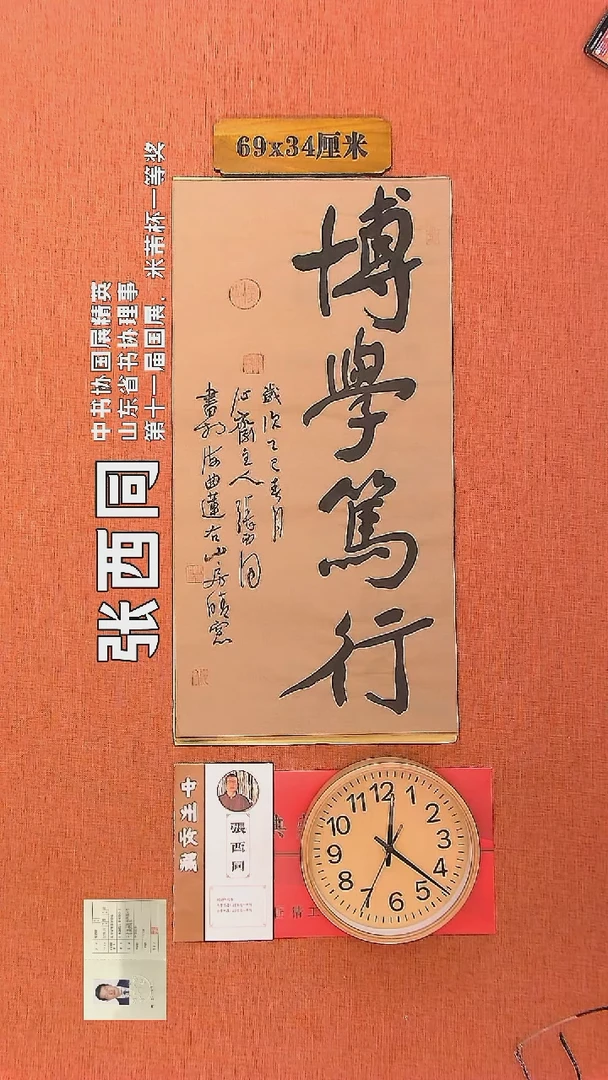 69x34厘米
博學篤行
歲次乙巳春月
沂齋主人張西同
書於海曲蓮右山房晴窓
中书协国展精英
山东省书协理事
第十一届国展、米芾杯一等奖
张西同
張西同
12
1
2
3
4
5
6
7
8
9
10
11